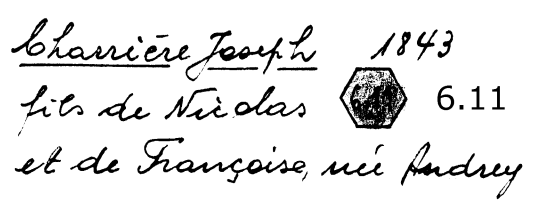 Charrière Joseph 1843
fils de Nicolas 6.11
et de Françoise, née Andrey